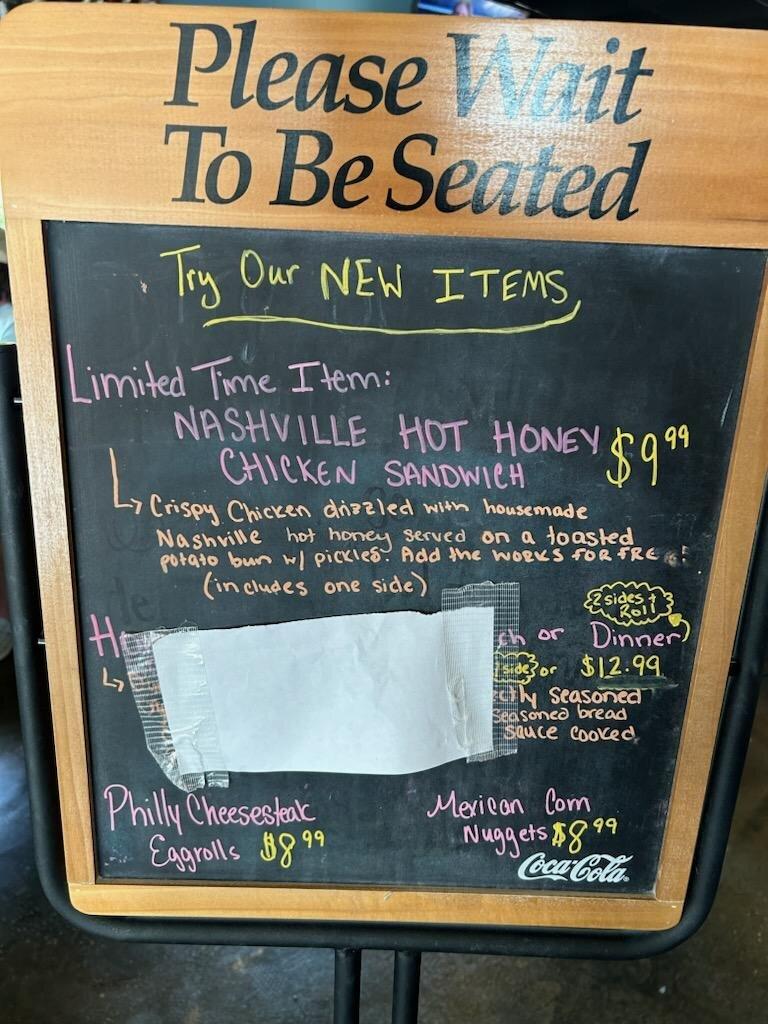 Please Wait
To Be Seated
Try Our NEW ITEMS
Limited Time Item:
NASHVILLE HOT HONEY
CHICKEN SANDWICH $9.99
Crispy Chicken drizzled with housemade
Nashville hot honey served on a toasted
potato bun w/ pickles. Add the WORKS FOR FREE!
(includes one side)
2 sides +
Roll
or Dinner
side or $12.99
Seasoned
Seasoned bread
Sauce cooked
Philly Cheesesteak
Eggrolls $8.99
Mexican Corn
Nuggets $8.99
Coca-Cola